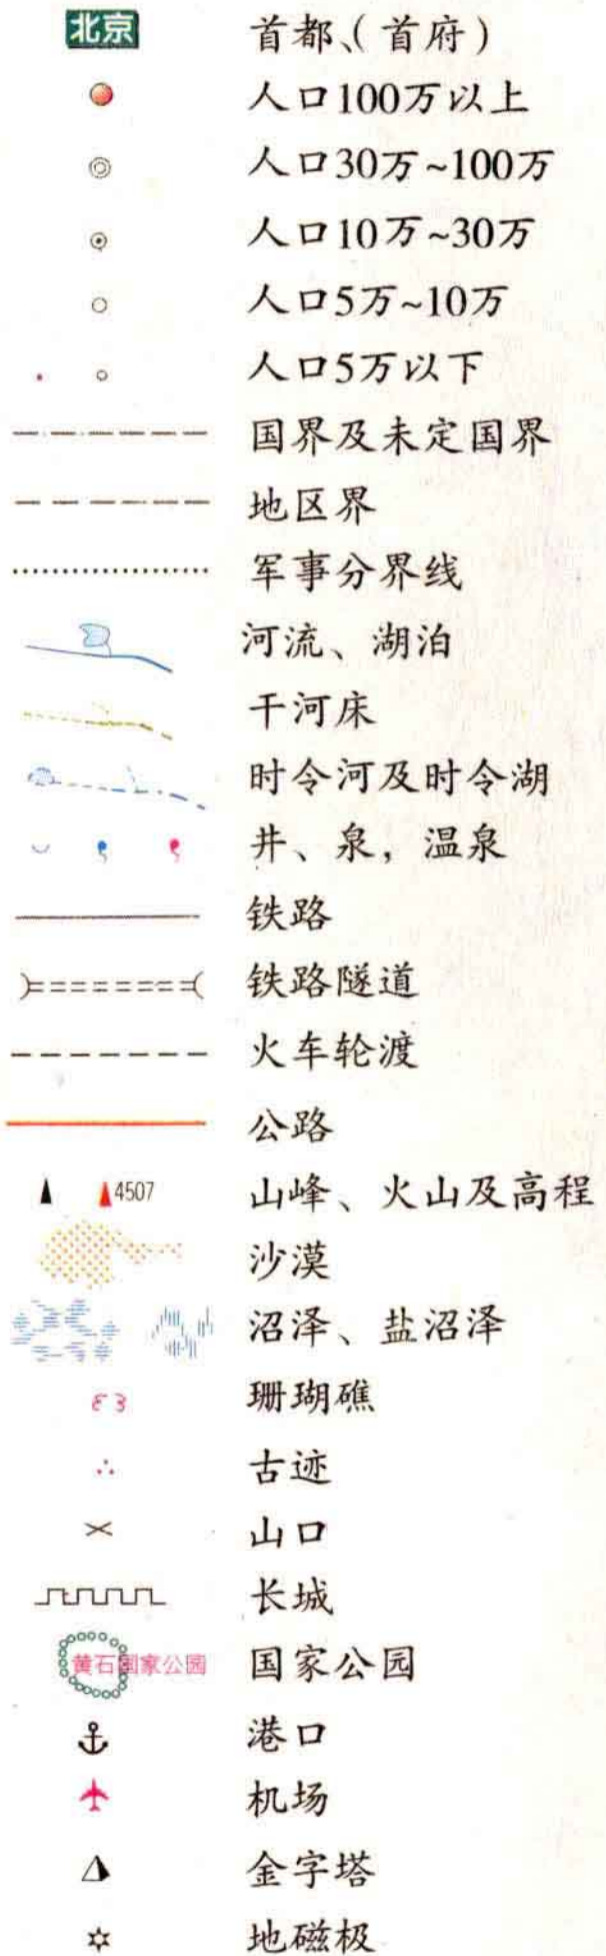 北京 首都、(首府)
人口100万以上
人口30万~100万
人口10万~30万
人口5万~10万
人口5万以下
国界及未定国界
地区界
军事分界线
河流、湖泊
干河床
时令河及时令湖
井、泉，温泉
铁路
铁路隧道
火车轮渡
公路
4507 山峰、火山及高程
沙漠
沼泽、盐沼泽
珊瑚礁
古迹
山口
长城
黄石国家公园 国家公园
港口
机场
金字塔
地磁极